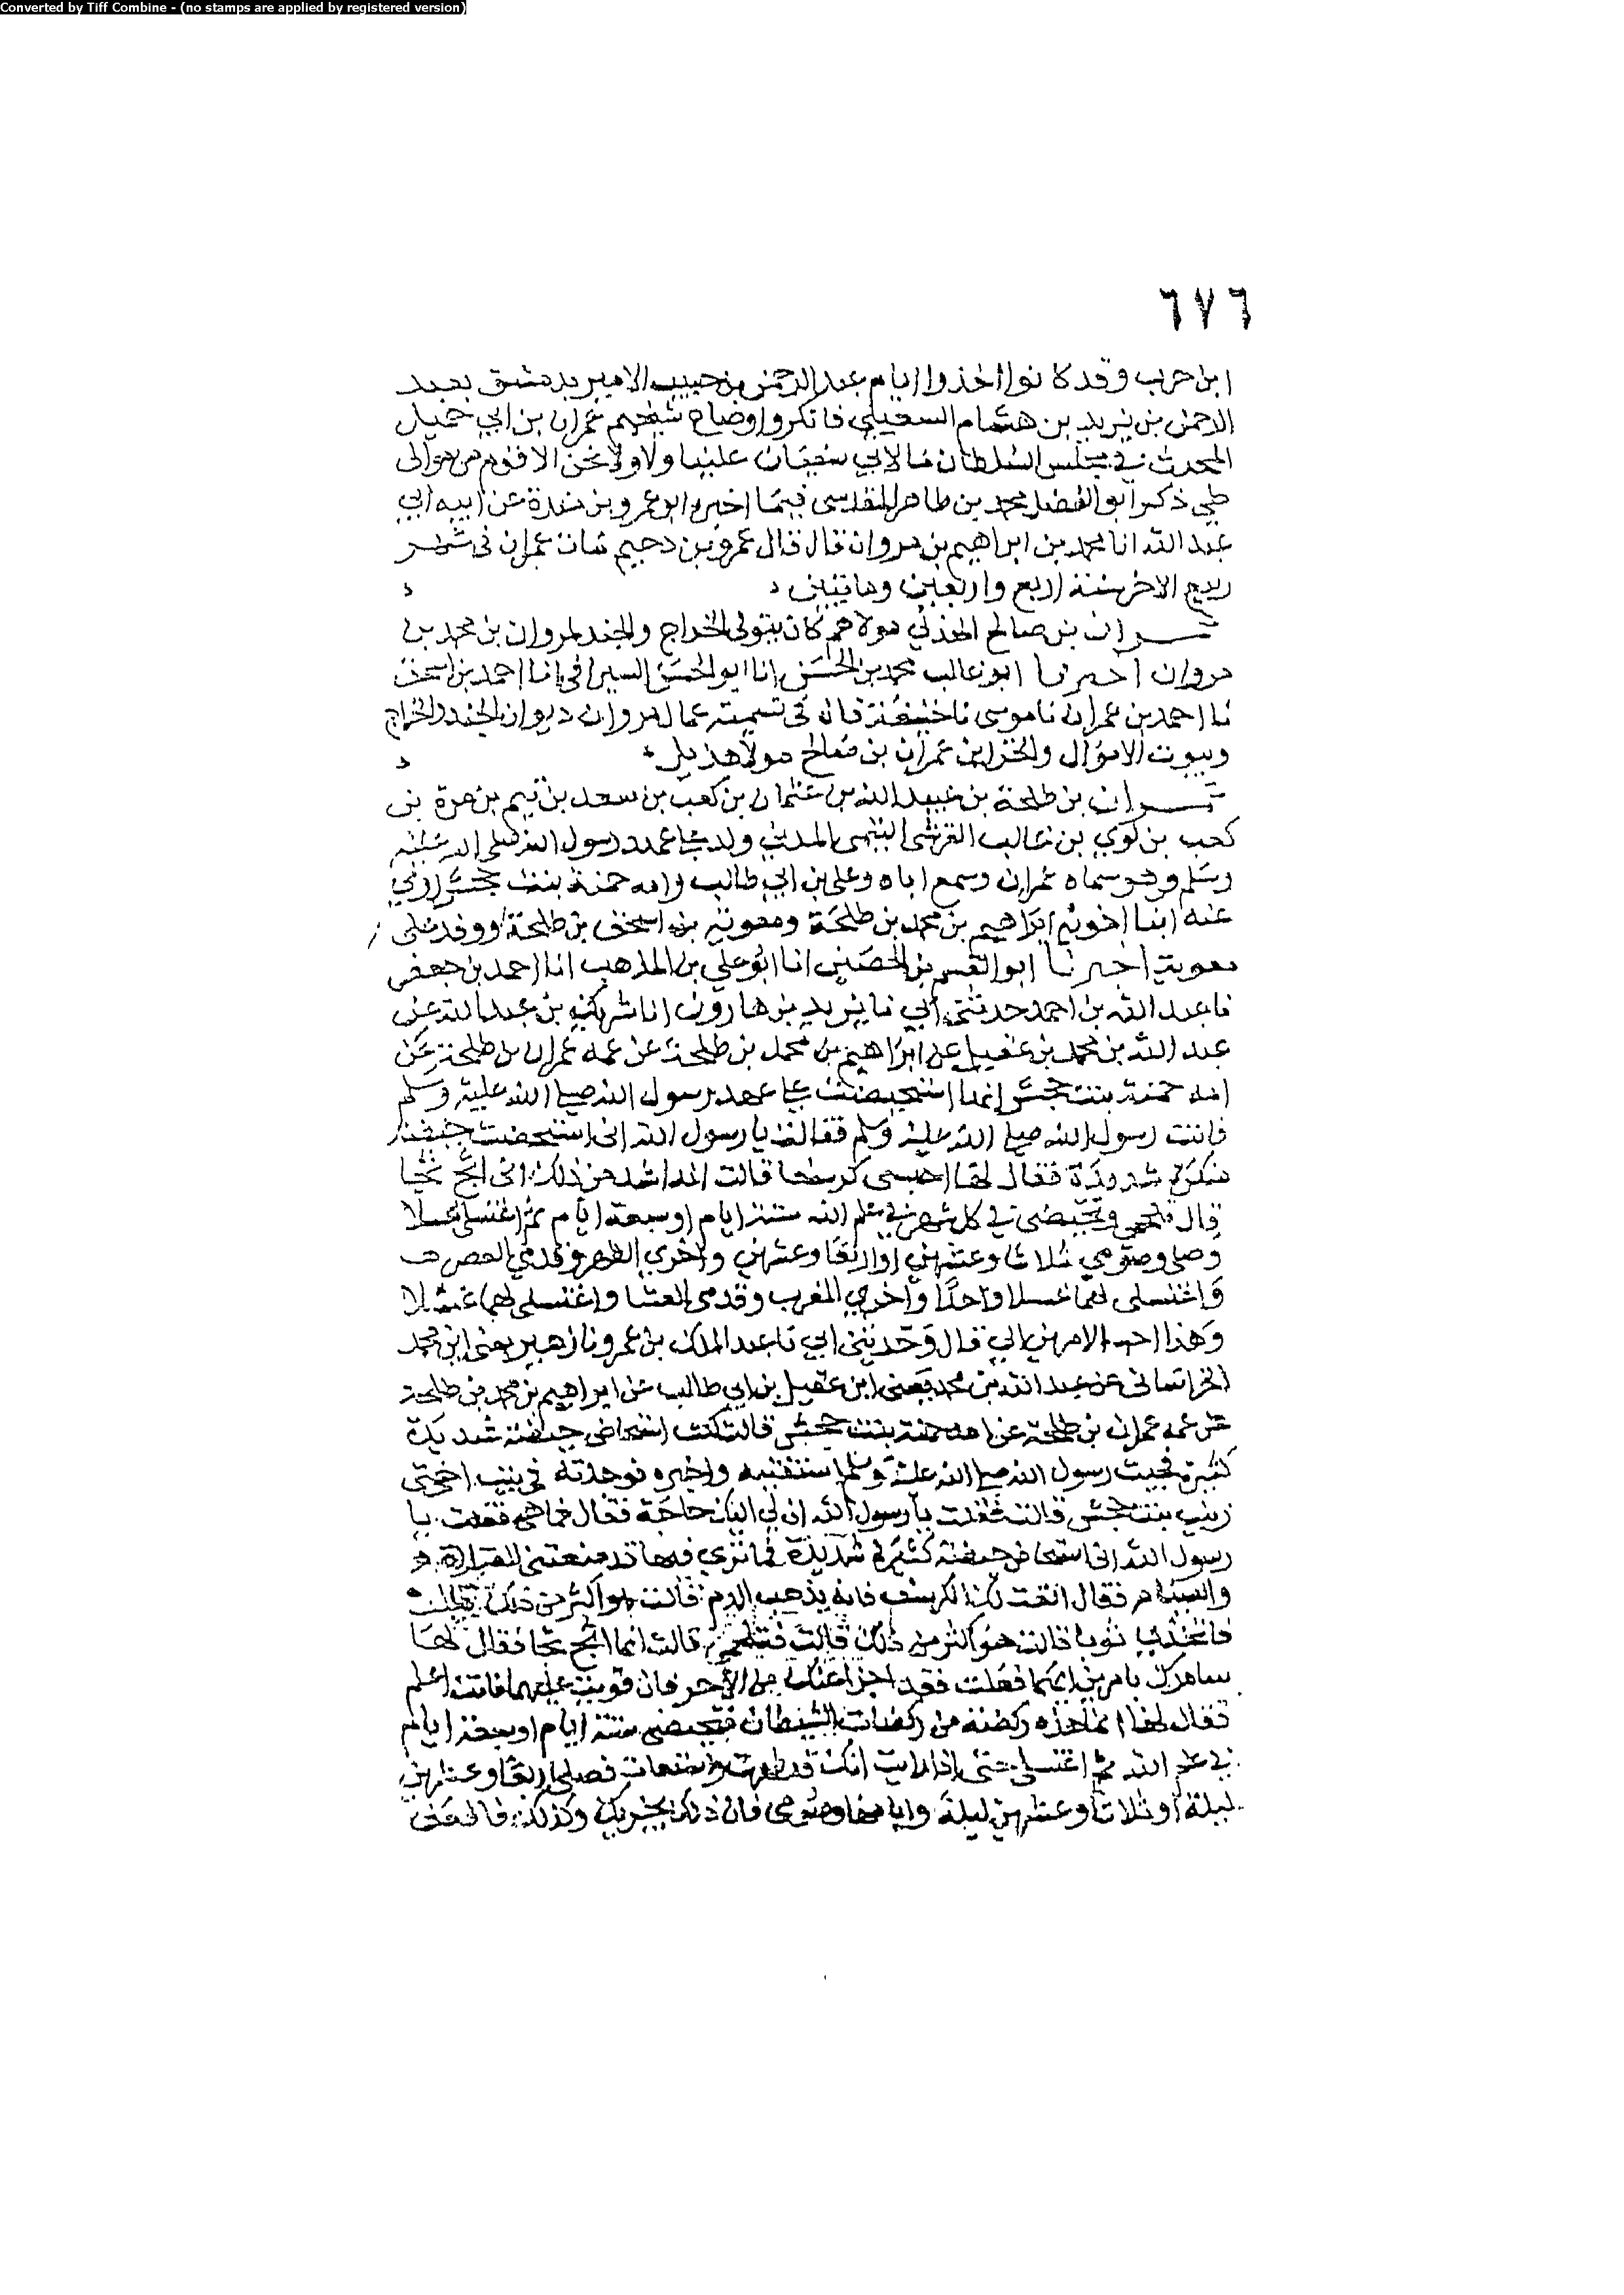 Converted by Tiff Combine - (no stamps are applied by registered version)
٦٧٦
ابن حرب وقد كانوا اخذوا ايام عبد الرحمن بن حبيب الامير بدمشق بعبد
الرحمن بن يزيد بن هشام السعيلي فانكروا وصاح شيخهم عمران بن ابي جميل
المحدث في مجلس السلطان ما لابي سفيان علينا ولا ولا نحن الا قوم من موالى
طي ذكر ابو الفضل محمد بن طاهر المقدسي فيما اخبره ابو عمرو بن مندة عن ابيه ابي
عبد الله انا محمد بن ابراهيم بن مروان قال قال عمرو بن دحيم مات عمران في شهر
ربيع الاخر سنة اربع واربعين ومايتين
عمران بن صالح الهذلي مولاهم كان يتولى الخراج والجند لمروان بن محمد بن
مروان اخبرنا ابو غالب محمد بن الحسن انا ابو الحسن السيرافي انا احمد بن اسحق
نا احمد بن عمران نا موسى نا خليفة قال في تسمية عمال مروان ديوان الجند والخراج
وبيوت الاموال والخزاين عمران بن صالح مولا هذيل
عمران بن طلحة بن عبيد الله بن عثمان بن كعب بن سعد بن تيم بن مرة بن
كعب بن لوي بن غالب القرشي التيمي المدني ولد على عهد رسول الله صلى الله عليه
وسلم وهو سماه عمران وسمع اباه وعلي بن ابي طالب وامه حمنة بنت جحش روي
عنه ابنا اخويه ابراهيم بن محمد بن طلحة ومعوية بن اسحق بن طلحة ووفد على
معوية اخبرنا ابو القسم بن الحصين انا ابو علي بن المذهب انا احمد بن جعفر
نا عبد الله بن احمد حدثني ابي نا يزيد بن هارون انا شريك بن عبد الله عن
عبد الله بن محمد بن عقيل عن ابراهيم بن محمد بن طلحة عن عمه عمران بن طلحة عن
امه حمنة بنت جحش انها استحيضت على عهد رسول الله صلى الله عليه وسلم
فاتت رسول الله صلى الله عليه وسلم فقالت يا رسول الله انى استحضت حيضة
منكرة شديدة فقال لها احتشي كرسفا قالت انه اشد من ذلك انى اثج ثجا
قال تلجمي وتحيضي في كل شهر في علم الله ستة ايام او سبعة ايام ثم اغتسلي غسلا
وصلي وصومي ثلاثا وعشرين او اربعا وعشرين واخري الظهر وقدمي العصر
واغتسلي لهما غسلا واحدا واخري المغرب وقدمي العشا واغتسلي لهما غسلا
وهذا احب الامرين الي قال وحدثني ابي نا عبد الملك بن عمرو نا زهير يعني ابن محمد
الخراساني عن عبد الله بن محمد يعني ابن عقيل بن ابي طالب عن ابراهيم بن محمد بن طلحة
عن عمه عمران بن طلحة عن امه حمنة بنت جحش قالت كنت استحاض حيضة شديدة
كثيرة فجيت رسول الله صلى الله عليه وسلم استفتيه واخبره فوجدته في بيت اختي
زينب بنت جحش قالت فقلت يا رسول الله ان لي اليك حاجة فقال فما هي فقلت يا
رسول الله انى استحاض حيضة كثيرة شديدة فما ترى فيها قد منعتني الصلاة
والصيام فقال انعت لك الكرسف فانه يذهب الدم قالت هو اكثر من ذلك
فاتخذي ثوبا قالت هو اكثر من ذلك قالت فتلجمي قالت انما اثج ثجا فقال لها
سامرك بامرين ايهما فعلت فقد اجزا عنك من الاخر فان قويت عليهما فانت اعلم
فقال لها انما هذه ركضة من ركضات الشيطان فتحيضي ستة ايام او سبعة ايام
في علم الله ثم اغتسلي حتى اذا رايت انك قد طهرت واستنقات فصلي اربعا وعشرين
ليلة او ثلاثا وعشرين ليلة وايامها وصومي فان ذلك يجزيك وكذلك فافعلي